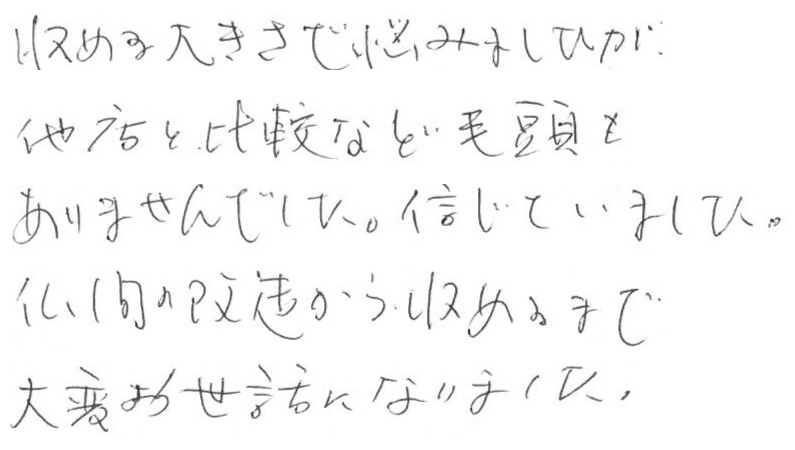 収める大きさで悩みましたが
他店と比較など毛頭も
ありませんでした。信じていました。
仏間の改造から収めるまで
大変お世話になりました。